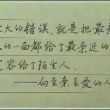 大的错误，就是把最
的一面都给了最亲近的
容给了陌生人
——向至亲至爱的人